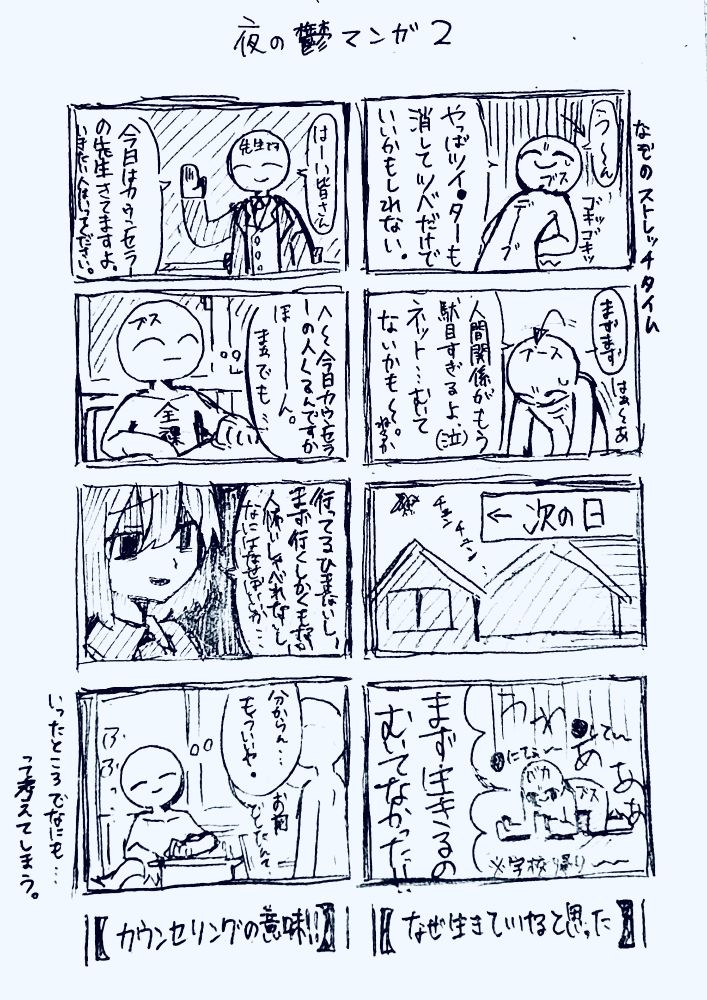 夜の鬱マンガ2
なぞのストレッチタイム
う〜ん
ブス
デブ
ゴキッゴキッ
やっぱツイ●ターも
消してツベだけで
いいかもしれない。
まずまず
はぁ〜あ
ブース
人間関係がもう
駄目すぎるよ、(泣)
ネット…むいて
ないかも〜。
ねるか
← 次の日
チュン
チュン…
バカ
ブス
※学校帰り〜〜
まず生きるの
むいてなかった!!
【なぜ生きていけると思った】
はーい皆さん
先生です
今日はカウンセラー
の先生きてますよ。
いきたい人はいってください。
ブス
全裸
へ〜今日カウンセラ
ーの人くるんですか
ほーーん。
まぁでも…
行ってるひまないし、
まず行くしかくもないか
人怖いしゃべれないし
分からん…
もういいや。
お前
いったところでなにも…
って考えてしまう。
【カウンセリングの意味!!】